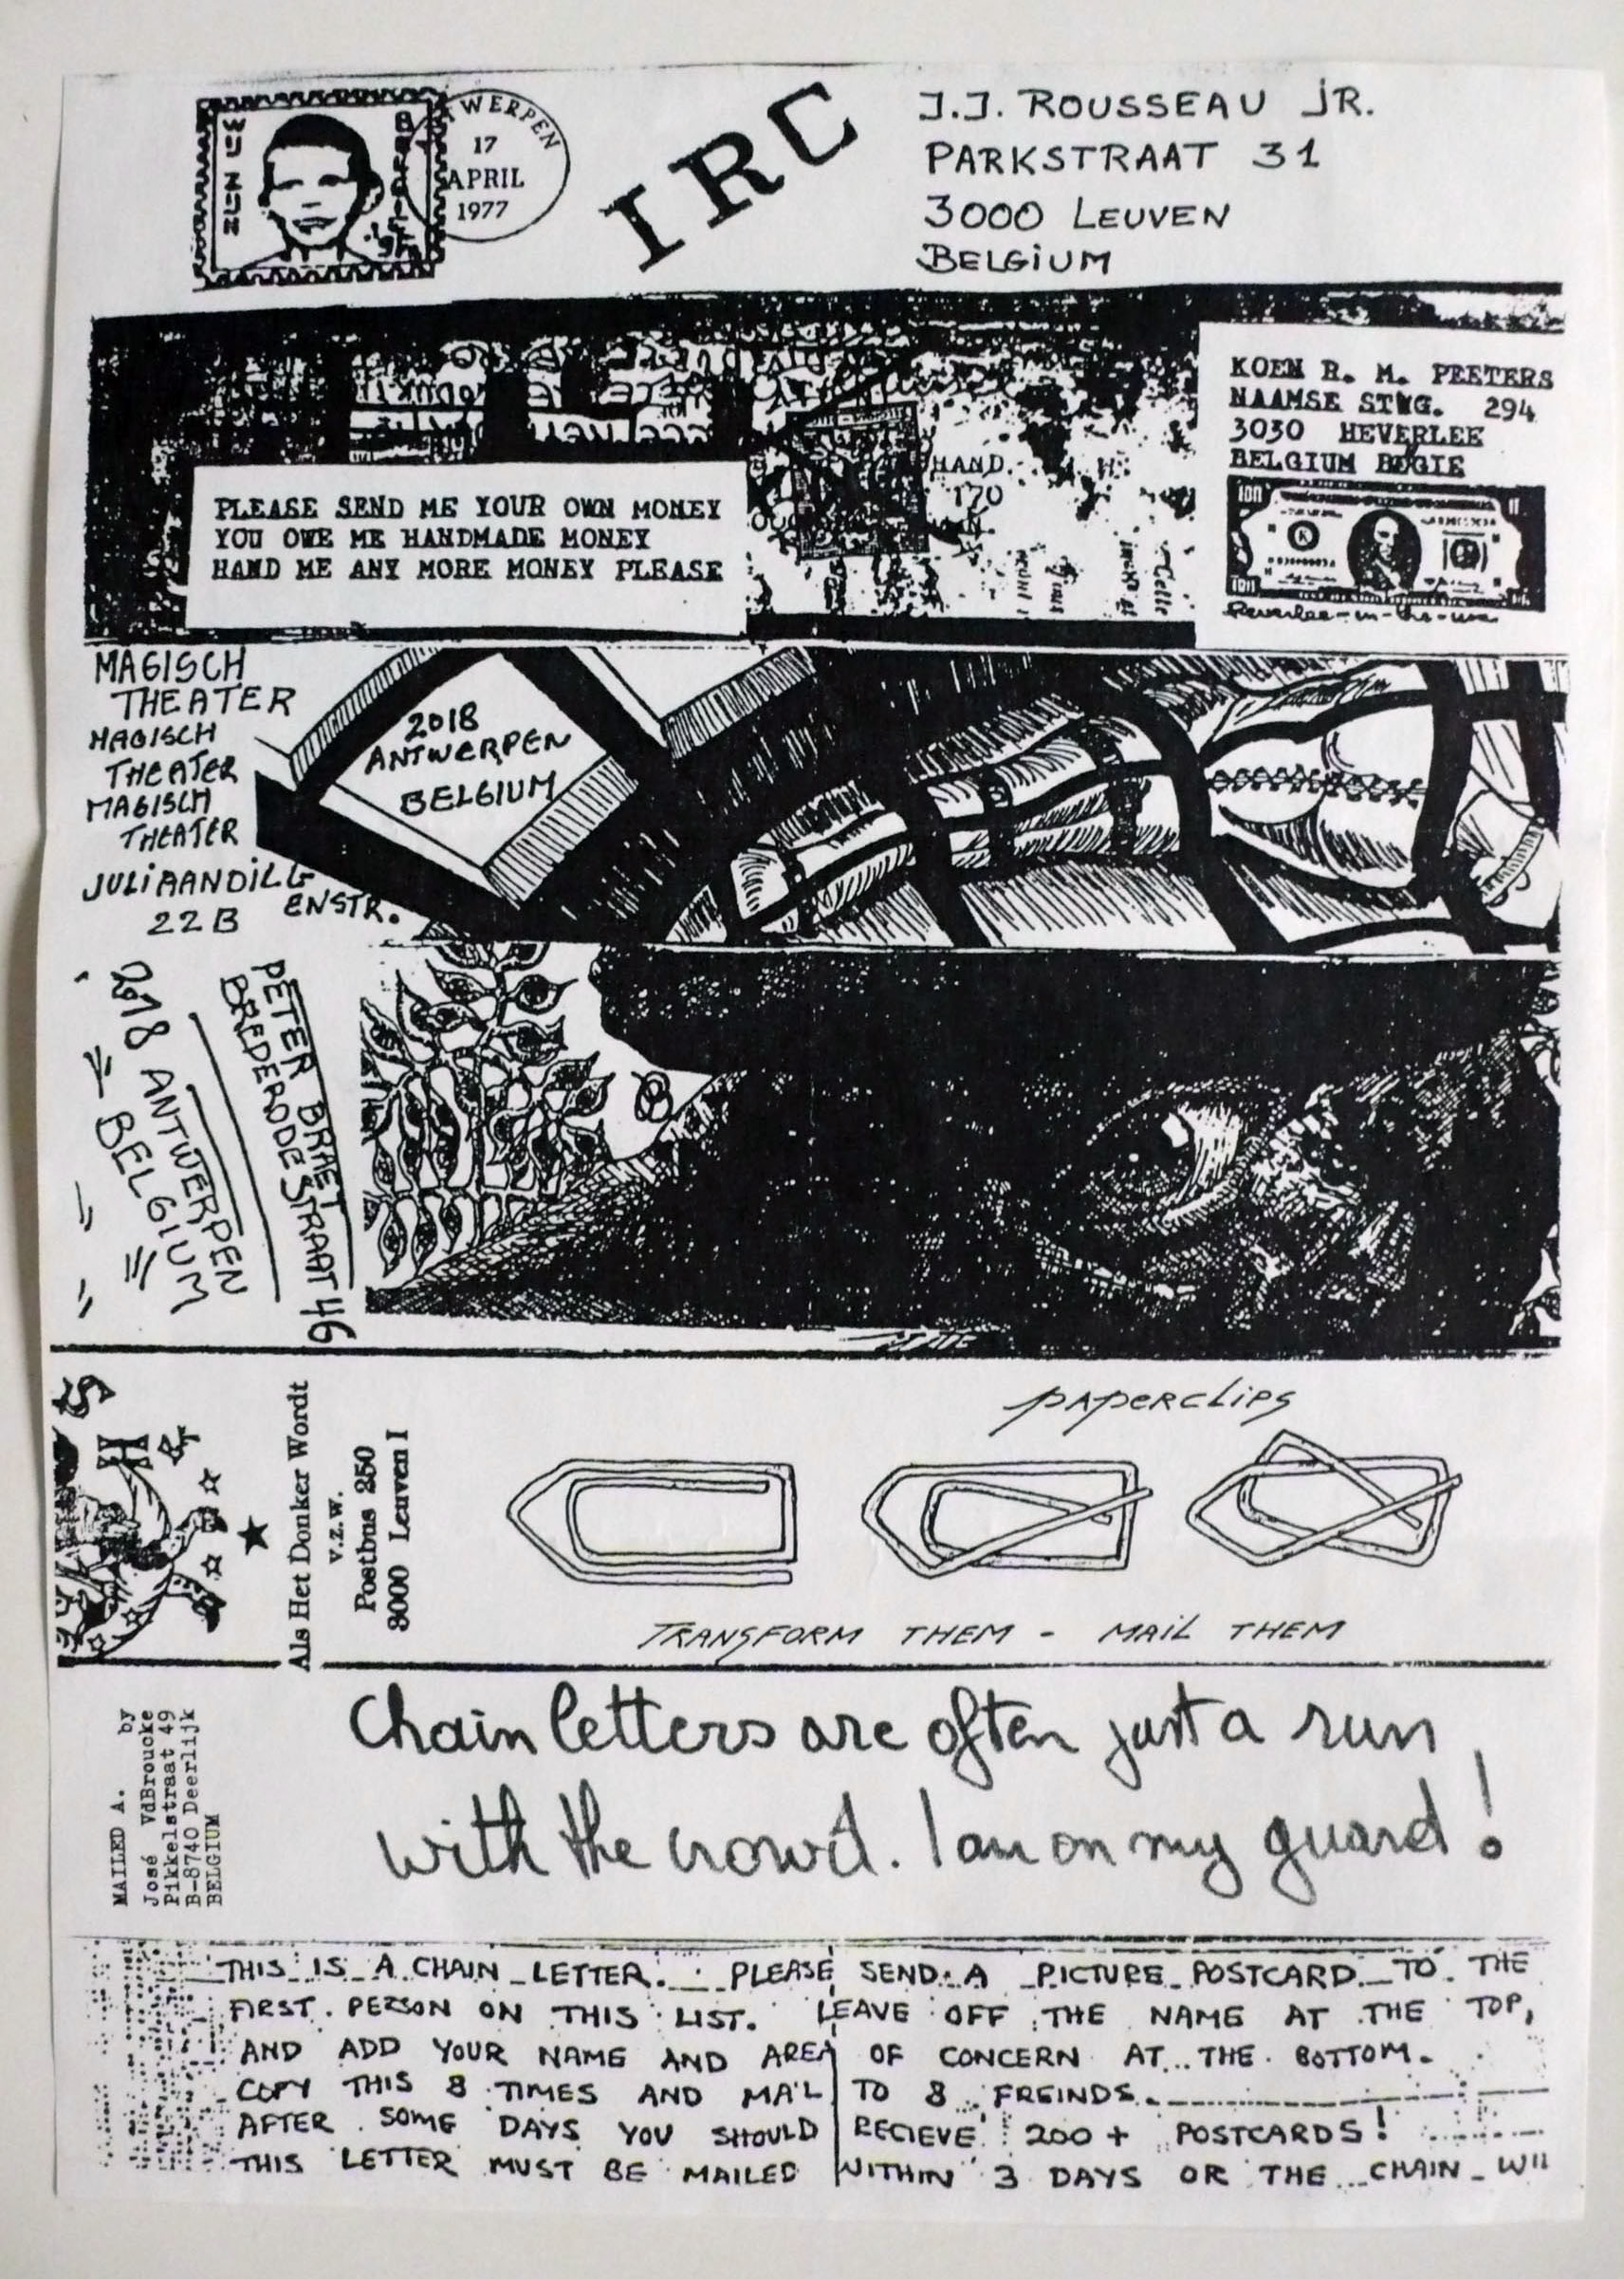 ANTWERPEN
17
APRIL
1977
IRC
J.J. ROUSSEAU JR.
PARKSTRAAT 31
3000 LEUVEN
BELGIUM
KOEN R. M. PEETERS
NAAMSE STWG. 294
3030 HEVERLEE
BELGIUM BEGIE
100
HAND.
170
PLEASE SEND ME YOUR OWN MONEY
YOU OWE ME HANDMADE MONEY
HAND ME ANY MORE MONEY PLEASE
MAGISCH
THEATER
MAGISCH
THEATER
MAGISCH
THEATER
JULIAANDILL
ENSTR.
22B
2018
ANTWERPEN
BELGIUM
PETER BRAET
BREDERODESTRAAT 46
2018 ANTWERPEN
= BELGIUM =
S
H
&
Als Het Donker Wordt
v.z.w.
Postbus 250
3000 Leuven I
paperclips
TRANSFORM THEM - MAIL THEM
MAILED A. by
José VdBroucke
Pikkelstraat 49
B-8740 Deerlijk
BELGIUM
Chain letters are often just a run
with the crowd. I am on my guard!
THIS IS A CHAIN LETTER. PLEASE SEND A PICTURE POSTCARD TO THE
FIRST PERSON ON THIS LIST. LEAVE OFF THE NAME AT THE TOP,
AND ADD YOUR NAME AND AREA OF CONCERN AT THE BOTTOM.
COPY THIS 8 TIMES AND MAIL TO 8 FREINDS.
AFTER SOME DAYS YOU SHOULD RECIEVE 200+ POSTCARDS!
THIS LETTER MUST BE MAILED WITHIN 3 DAYS OR THE CHAIN WIL